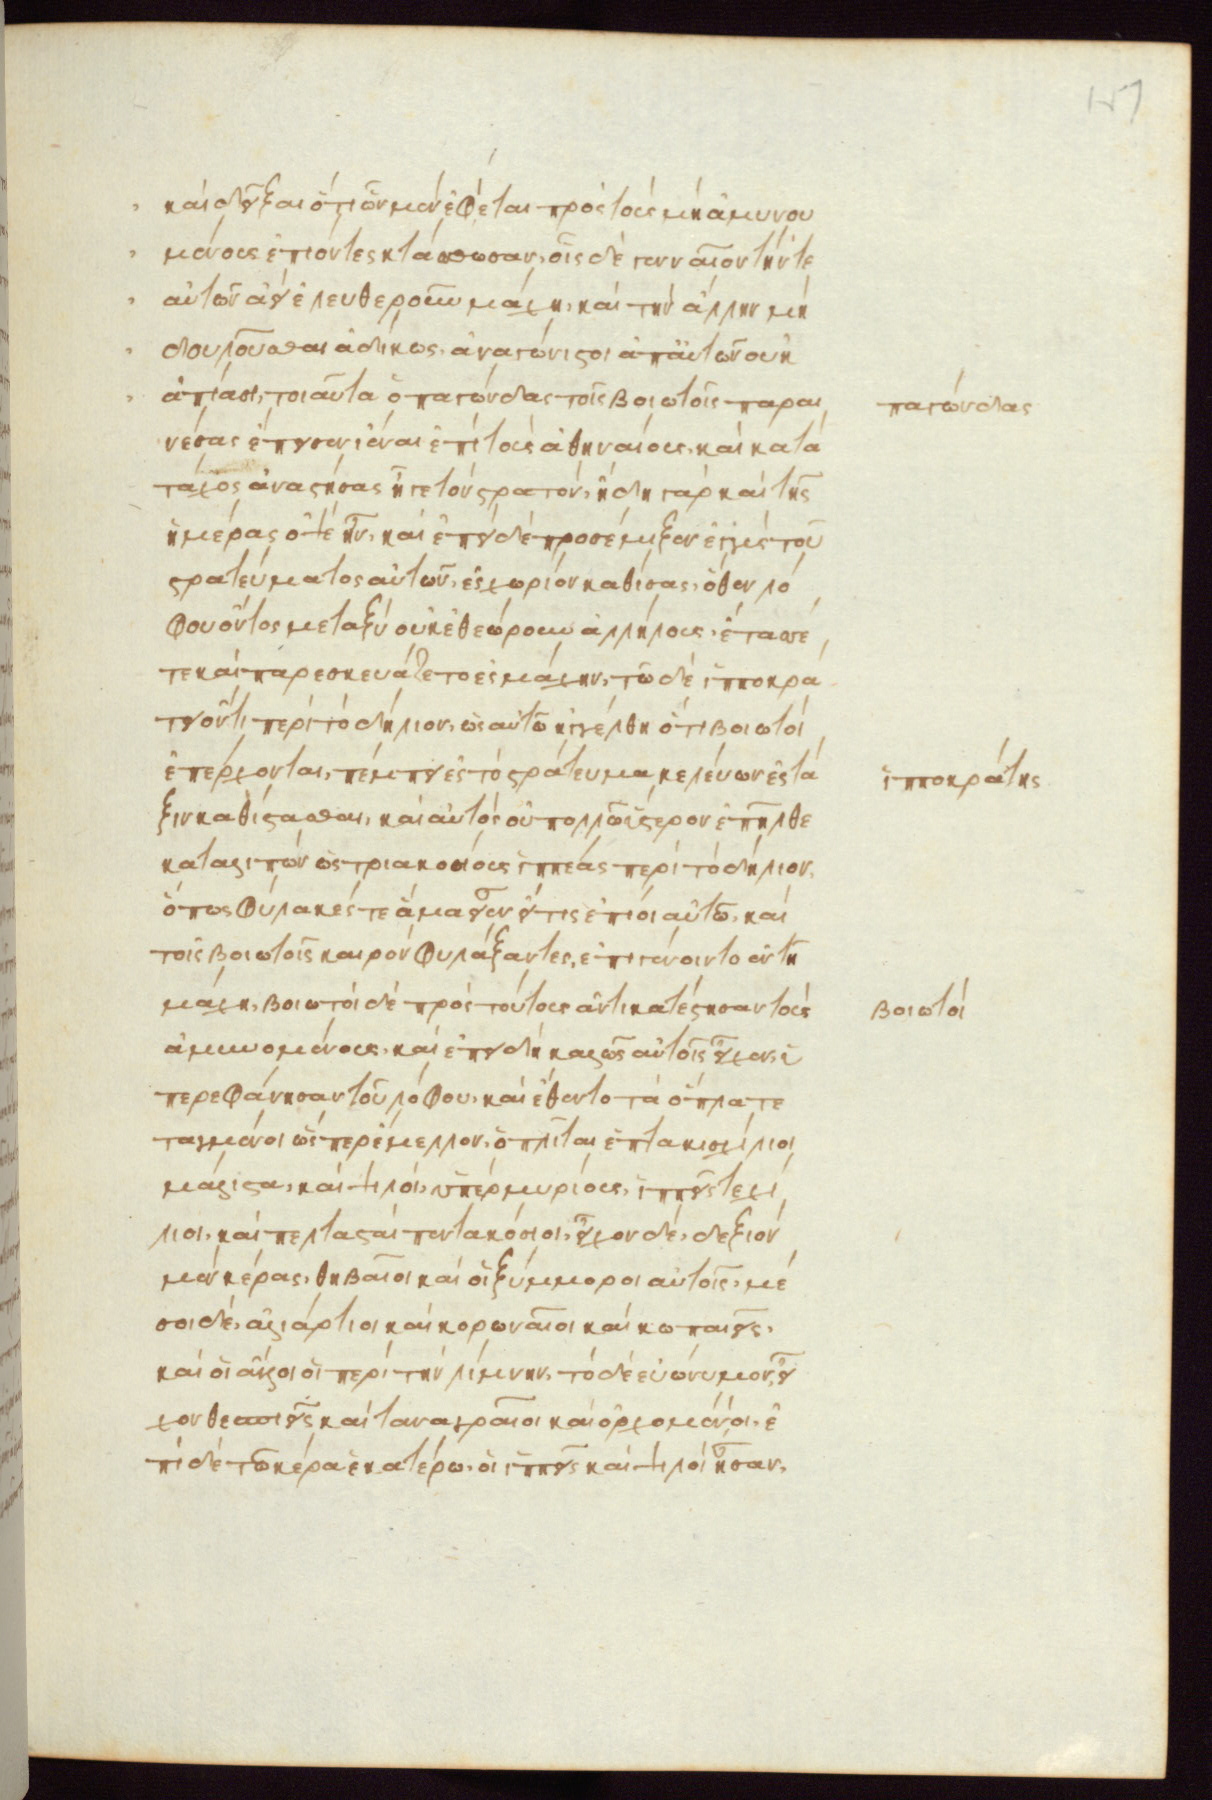 καὶ δεῖξαι ὅτι ὧν μὲν ἐφίεται πρὸς τοὺς μὴ ἀμυνου
μένους ἐπιόντες κτάσθωσαν, οἷς δὲ γενναῖον τήν τε
αὑτῶν ἀεὶ ἐλευθεροῦν μάχη, καὶ τὴν ἄλλην μὴ
δουλοῦσθαι ἀδίκως, ἀναγώνιστοι ἀπ' αὐτῶν οὐκ
ἀπίασι, τοιαῦτα ὁ παγώνδας τοῖς βοιωτοῖς παραι
παγώνδας
νέσας ἔπεισεν ἰέναι ἐπὶ τοὺς ἀθηναίους, καὶ κατὰ
τάχος ἀναστήσας ἦγε τὸν στρατόν, ἤδη γὰρ καὶ τῆς
ἡμέρας ὀψὲ ἦν, καὶ ἐπεὶ δὲ προσέμιξεν ἐγγὺς τοῦ
στρατεύματος αὐτῶν, ἐς χωρίον καθίσας, ὅθεν λό
φου ὄντος μεταξὺ οὐκ ἐθεώρουν ἀλλήλους, ἔτασσέ
τε καὶ παρεσκευάζετο ἐς μάχην, τῷ δὲ ἱπποκρά
τει ὄντι περὶ τὸ δήλιον, ὡς αὐτῷ ἠγγέλθη ὅτι βοιωτοὶ
ἐπέρχονται, πέμπει ἐς τὸ στράτευμα κελεύων ἐς τά
ἱπποκράτης
ξιν καθίστασθαι, καὶ αὐτὸς οὐ πολλῷ ὕστερον ἐπῆλθε
καταλιπὼν ὡς τριακοσίους ἱππέας περὶ τὸ δήλιον,
ὅπως φύλακές τε ἅμα εἶεν εἴ τις ἐπίοι αὐτῷ, καὶ
τοῖς βοιωτοῖς καιρὸν φυλάξαντες, ἐπιγένοιντο ἐν τῇ
μάχη, βοιωτοὶ δὲ πρὸς τούτους ἀντικατέστησαν τοὺς
βοιωτοὶ
ἀμυνομένους, καὶ ἐπειδὴ καλῶς αὐτοῖς εἶχεν, ὑ
περεφάνησαν τοῦ λόφου, καὶ ἔθεντο τὰ ὅπλα τε
ταγμένοι ὥσπερ ἔμελλον, ὁπλῖται ἑπτακισχίλιοι
μάλιστα, καὶ ψιλοὶ, ὑπὲρ μυρίους, ἱππεῖς τε χί
λιοι, καὶ πελτασταὶ πεντακόσιοι, εἶχον δὲ, δεξιὸν
μὲν κέρας, θηβαῖοι καὶ οἱ ξύμμοροι αὐτοῖς, μέ
σοι δὲ, ἁλιάρτιοι καὶ κορωναῖοι καὶ κωπαιεῖς,
καὶ οἱ ἄλλοι οἱ περὶ τὴν λίμνην, τὸ δὲ εὐώνυμον, εἶ
χον θεσπιεῖς καὶ ταναγραῖοι καὶ ὀρχομένιοι, ἐ
πὶ δὲ τῷ κέρα ἑκατέρω, οἱ ἱππεῖς καὶ ψιλοὶ ἦσαν,